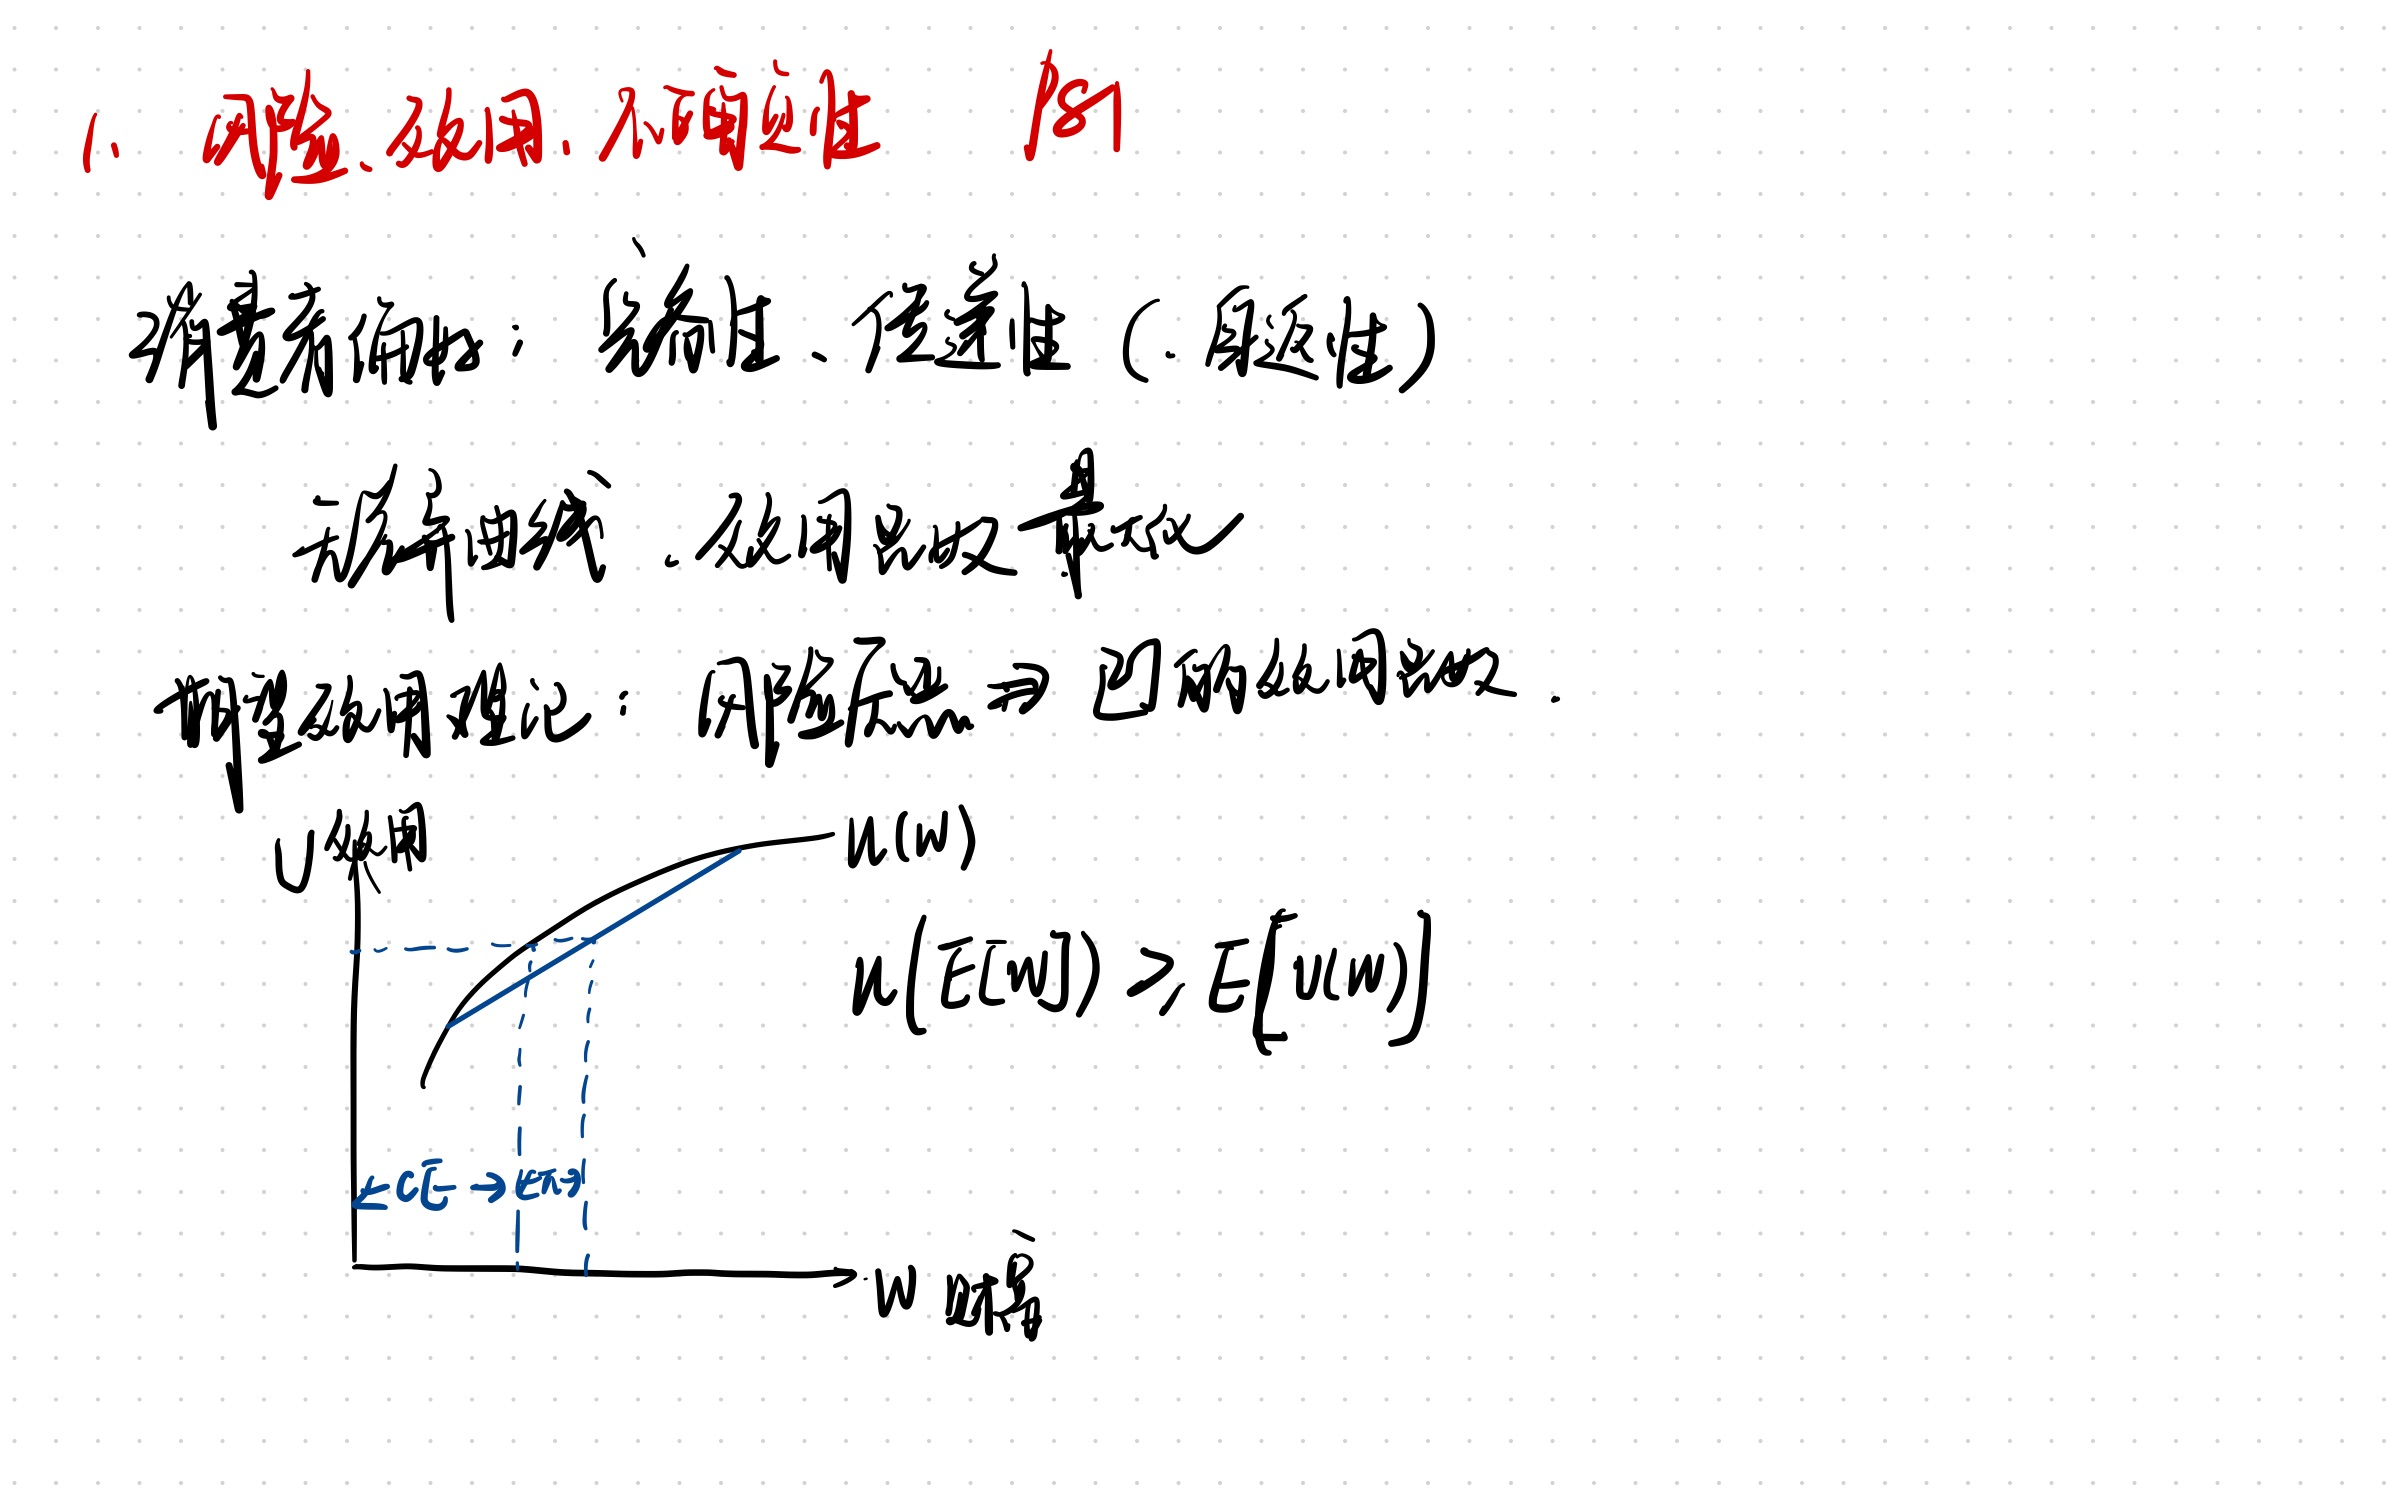 1. 风险、效用、不确定性 P81
消费者偏好：完备性、传递性（.自返性）
无差异曲线、效用函数最大化
期望效用理论：风险厌恶⇒凹的效用函数.
U效用
u(W)
u(E[W]) ⩾ E[U(W)]
← CE →
W 财富